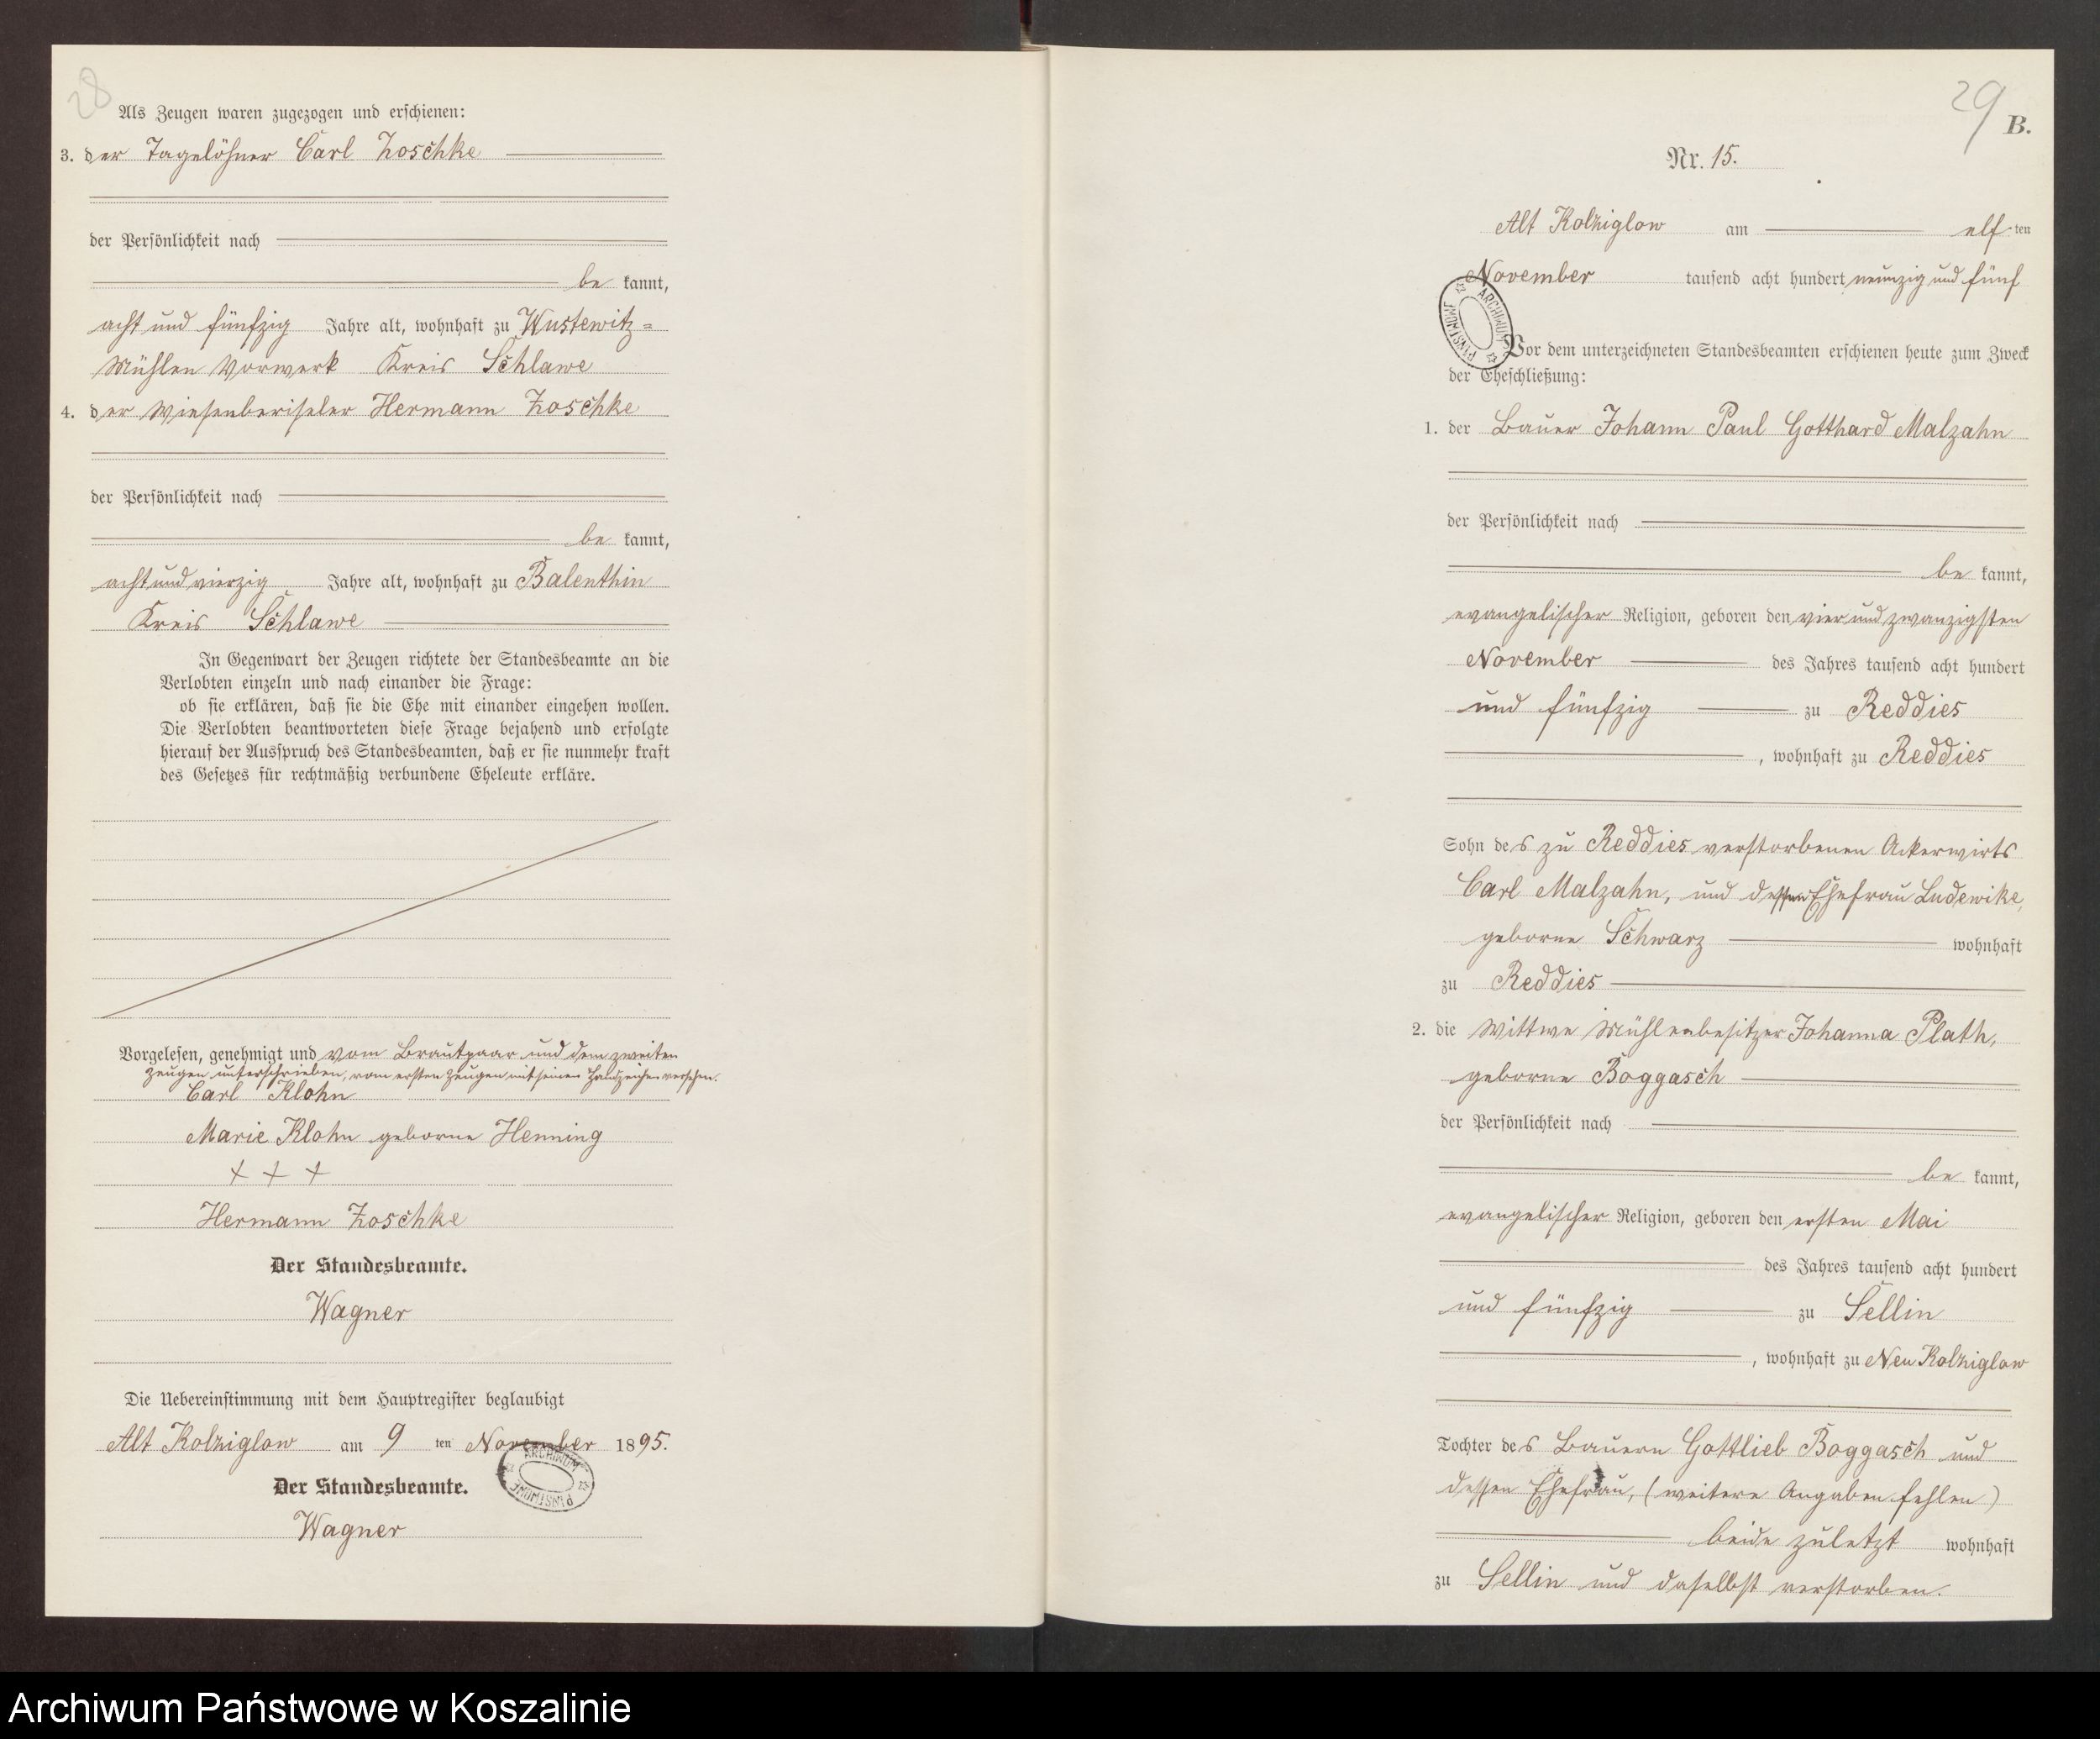 28
Als Zeugen waren zugezogen und erschienen:
3. der Tagelöhner Carl Zoschke
der Persönlichkeit nach
be kannt,
acht und fünfzig Jahre alt, wohnhaft zu Wustewitz=
Mühlen Vorwerk Kreis Schlawe
4. der Hermann Zoschke
der Persönlichkeit nach
be kannt,
acht und vierzig Jahre alt, wohnhaft zu Balenthin
Kreis Schlawe
In Gegenwart der Zeugen richtete der Standesbeamte an die
Verlobten einzeln und nach einander die Frage:
ob sie erklären, daß sie die Ehe mit einander eingehen wollen.
Die Verlobten beantworteten diese Frage bejahend und erfolgte
hierauf der Ausspruch des Standesbeamten, daß er sie nunmehr kraft
des Gesetzes für rechtmäßig verbundene Eheleute erkläre.
Vorgelesen, genehmigt und vom Brautpaar und dem zweiten
Zeugen unterschrieben, vom ersten Zeugen mit seinen Handzeichen versehen.
Carl Klohn
Marie Klohn geborne Henning
+ + +
Hermann Zoschke
Der Standesbeamte.
Wagner
Die Uebereinstimmung mit dem Hauptregister beglaubigt
Alt Kolziglow am 9 ten November 1895.
Der Standesbeamte.
Wagner
29
B.
Nr. 15.
Alt Kolziglow am elf ten
November tausend acht hundert neunzig und fünf
Vor dem unterzeichneten Standesbeamten erschienen heute zum Zweck
der Eheschließung:
1. der Bauer Johann Paul Gotthard Malzahn
der Persönlichkeit nach
be kannt,
evangelischer Religion, geboren den vier und zwanzigsten
November des Jahres tausend acht hundert
und fünfzig zu Reddies
, wohnhaft zu Reddies
Sohn des zu Reddies verstorbenen Ackerwirts
Carl Malzahn, und dessen Ehefrau Ludewike,
geborne Schwarz wohnhaft
zu Reddies
2. die Wittwe Mühlenbesitzer Johanna Plath,
geborne Boggasch
der Persönlichkeit nach
be kannt,
evangelischer Religion, geboren den ersten Mai
des Jahres tausend acht hundert
und fünfzig zu Sellin
, wohnhaft zu Neu Kolziglow
Tochter des Bauern Gottlieb Boggasch und
dessen Ehefrau, (weitere Angaben fehlen)
beide zuletzt wohnhaft
zu Sellin und daselbst verstorben.
Archiwum Państwowe w Koszalinie